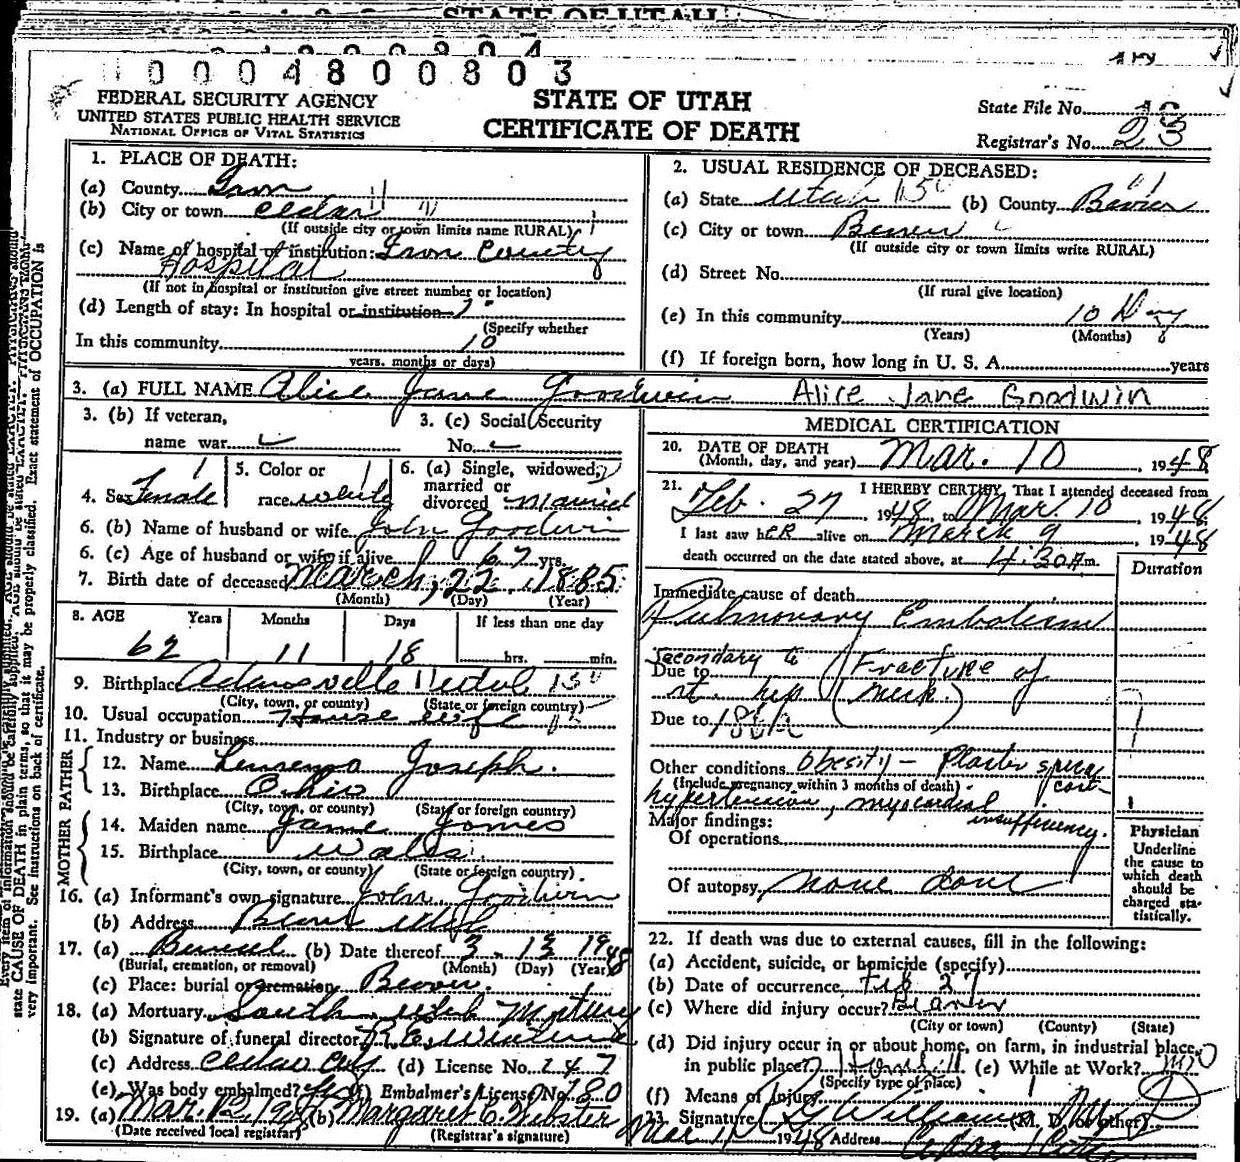 STATE OF UTAH
0004800803
FEDERAL SECURITY AGENCY
UNITED STATES PUBLIC HEALTH SERVICE
NATIONAL OFFICE OF VITAL STATISTICS
STATE OF UTAH
CERTIFICATE OF DEATH
State File No.
Registrar's No. 23
1. PLACE OF DEATH:
(a) County Iron
(b) City or town Cedar
(If outside city or town limits name RURAL)
(c) Name of hospital of institution: Iron County
Hospital
(If not in hospital or institution give street number or location)
(d) Length of stay: In hospital or institution
(Specify whether
In this community 10
years. months or days)
2. USUAL RESIDENCE OF DECEASED:
(a) State Utah (b) County Beaver
(c) City or town Beaver
(If outside city or town limits write RURAL)
(d) Street No.
(If rural give location)
(e) In this community 10 Day
(Years) (Months)
(f) If foreign born, how long in U. S. A. years
3. (a) FULL NAME Alice Jane Goodwin Alice Jane Goodwin
3. (b) If veteran,
name war
3. (c) Social Security
No.
4. Sex Female
5. Color or
race white
6. (a) Single, widowed,
married or
divorced Married
6. (b) Name of husband or wife John Goodwin
6. (c) Age of husband or wife if alive 67 yrs.
7. Birth date of deceased March, 22, 1885
(Month) (Day) (Year)
8. AGE Years Months Days If less than one day
62 11 18 hrs. min.
9. Birthplace Adamsville Utah
(City, town, or county) (State or foreign country)
10. Usual occupation House wife
11. Industry or business
FATHER
12. Name Joseph.
13. Birthplace Ohio
(City, town, or county) (State or foreign country)
MOTHER
14. Maiden name Jane
15. Birthplace Wales
(City, town, or county) (State or foreign country)
16. (a) Informant's own signature John Goodwin
(b) Address Beaver Utah
17. (a) Burial (b) Date thereof 3 - 13 1948
(Burial, cremation, or removal) (Month) (Day) (Year)
(c) Place: burial or cremation Beaver.
18. (a) Mortuary South Utah Mortuary
(b) Signature of funeral director
(c) Address Cedar City (d) License No. 247
(e) Was body embalmed? (f) Embalmer's License No. 180
19. (a) Mar. 12, 1948 (b) Margaret C. Webster
(Date received local registrar) (Registrar's signature)
MEDICAL CERTIFICATION
20. DATE OF DEATH
(Month, day, and year) Mar. 10, 1948
21. I HEREBY CERTIFY, That I attended deceased from
Feb. 27, 1948, to Mar. 10, 1948
I last saw hER alive on March 9, 1948
death occurred on the date stated above, at 4:30 A m.
Duration
Immediate cause of death
Pulmonary Embolism
secondary to Fracture of
Due to
rt. hip (neck)
Due to
Other conditions obesity - Plaster spica cast -
(Include pregnancy within 3 months of death)
hypertension, myocardial insufficiency.
Major findings:
Of operations
Of autopsy none done
Physician
Underline
the cause to
which death
should be
charged sta-
tistically.
22. If death was due to external causes, fill in the following:
(a) Accident, suicide, or homicide (specify)
(b) Date of occurrence Feb 27
(c) Where did injury occur? Beaver
(City or town) (County) (State)
(d) Did injury occur in or about home, on farm, in industrial place,
in public place? (e) While at Work? no
(Specify type of place)
(f) Means of Injury
23. Signature Williams (M. D. or other)
Mar 11 1948 Address Cedar City
Every item of information should be carefully supplied.
state CAUSE OF DEATH in plain terms, so that it may be properly classified. Exact statement of OCCUPATION is
very important. See instructions on back of certificate.